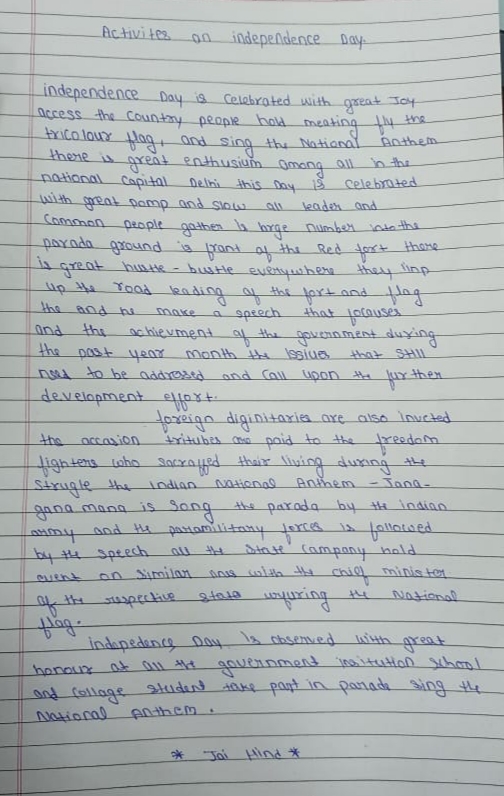 Activites on independence Day.
independence Day is celebrated with great Joy
access the country people hold meating fly the
tricolour flag, and sing the National Anthem
there is great enthusium among all in the
national capital Delhi this Day is celebrated
with great pomp and slow all leader and
common people gather is large number into the
parada ground is frant of the Red fort there
is great hustle - bustle everywhere they linp
up the road leading of the fort and flag
the and he make a speech that focuses
and the achievment of the government during
the past year month the issues that still
to be addressed and call upon the further
development effort.
foreign diginitaries are also invcted
the accasion tritubes are paid to the freedom
fighters who their living during the
strugle the indian National Anthem - Jana-
gana mana is song the parada by the indian
army and the paramilitary forces is followed
by the speech all the state company hold
event on similar with the chief minister
of the respective state the National
flag.
indepedence Day is observed with great
honour at all the government insitution school
and collage student take part in parade sing the
National Anthem.
* Jai Hind *